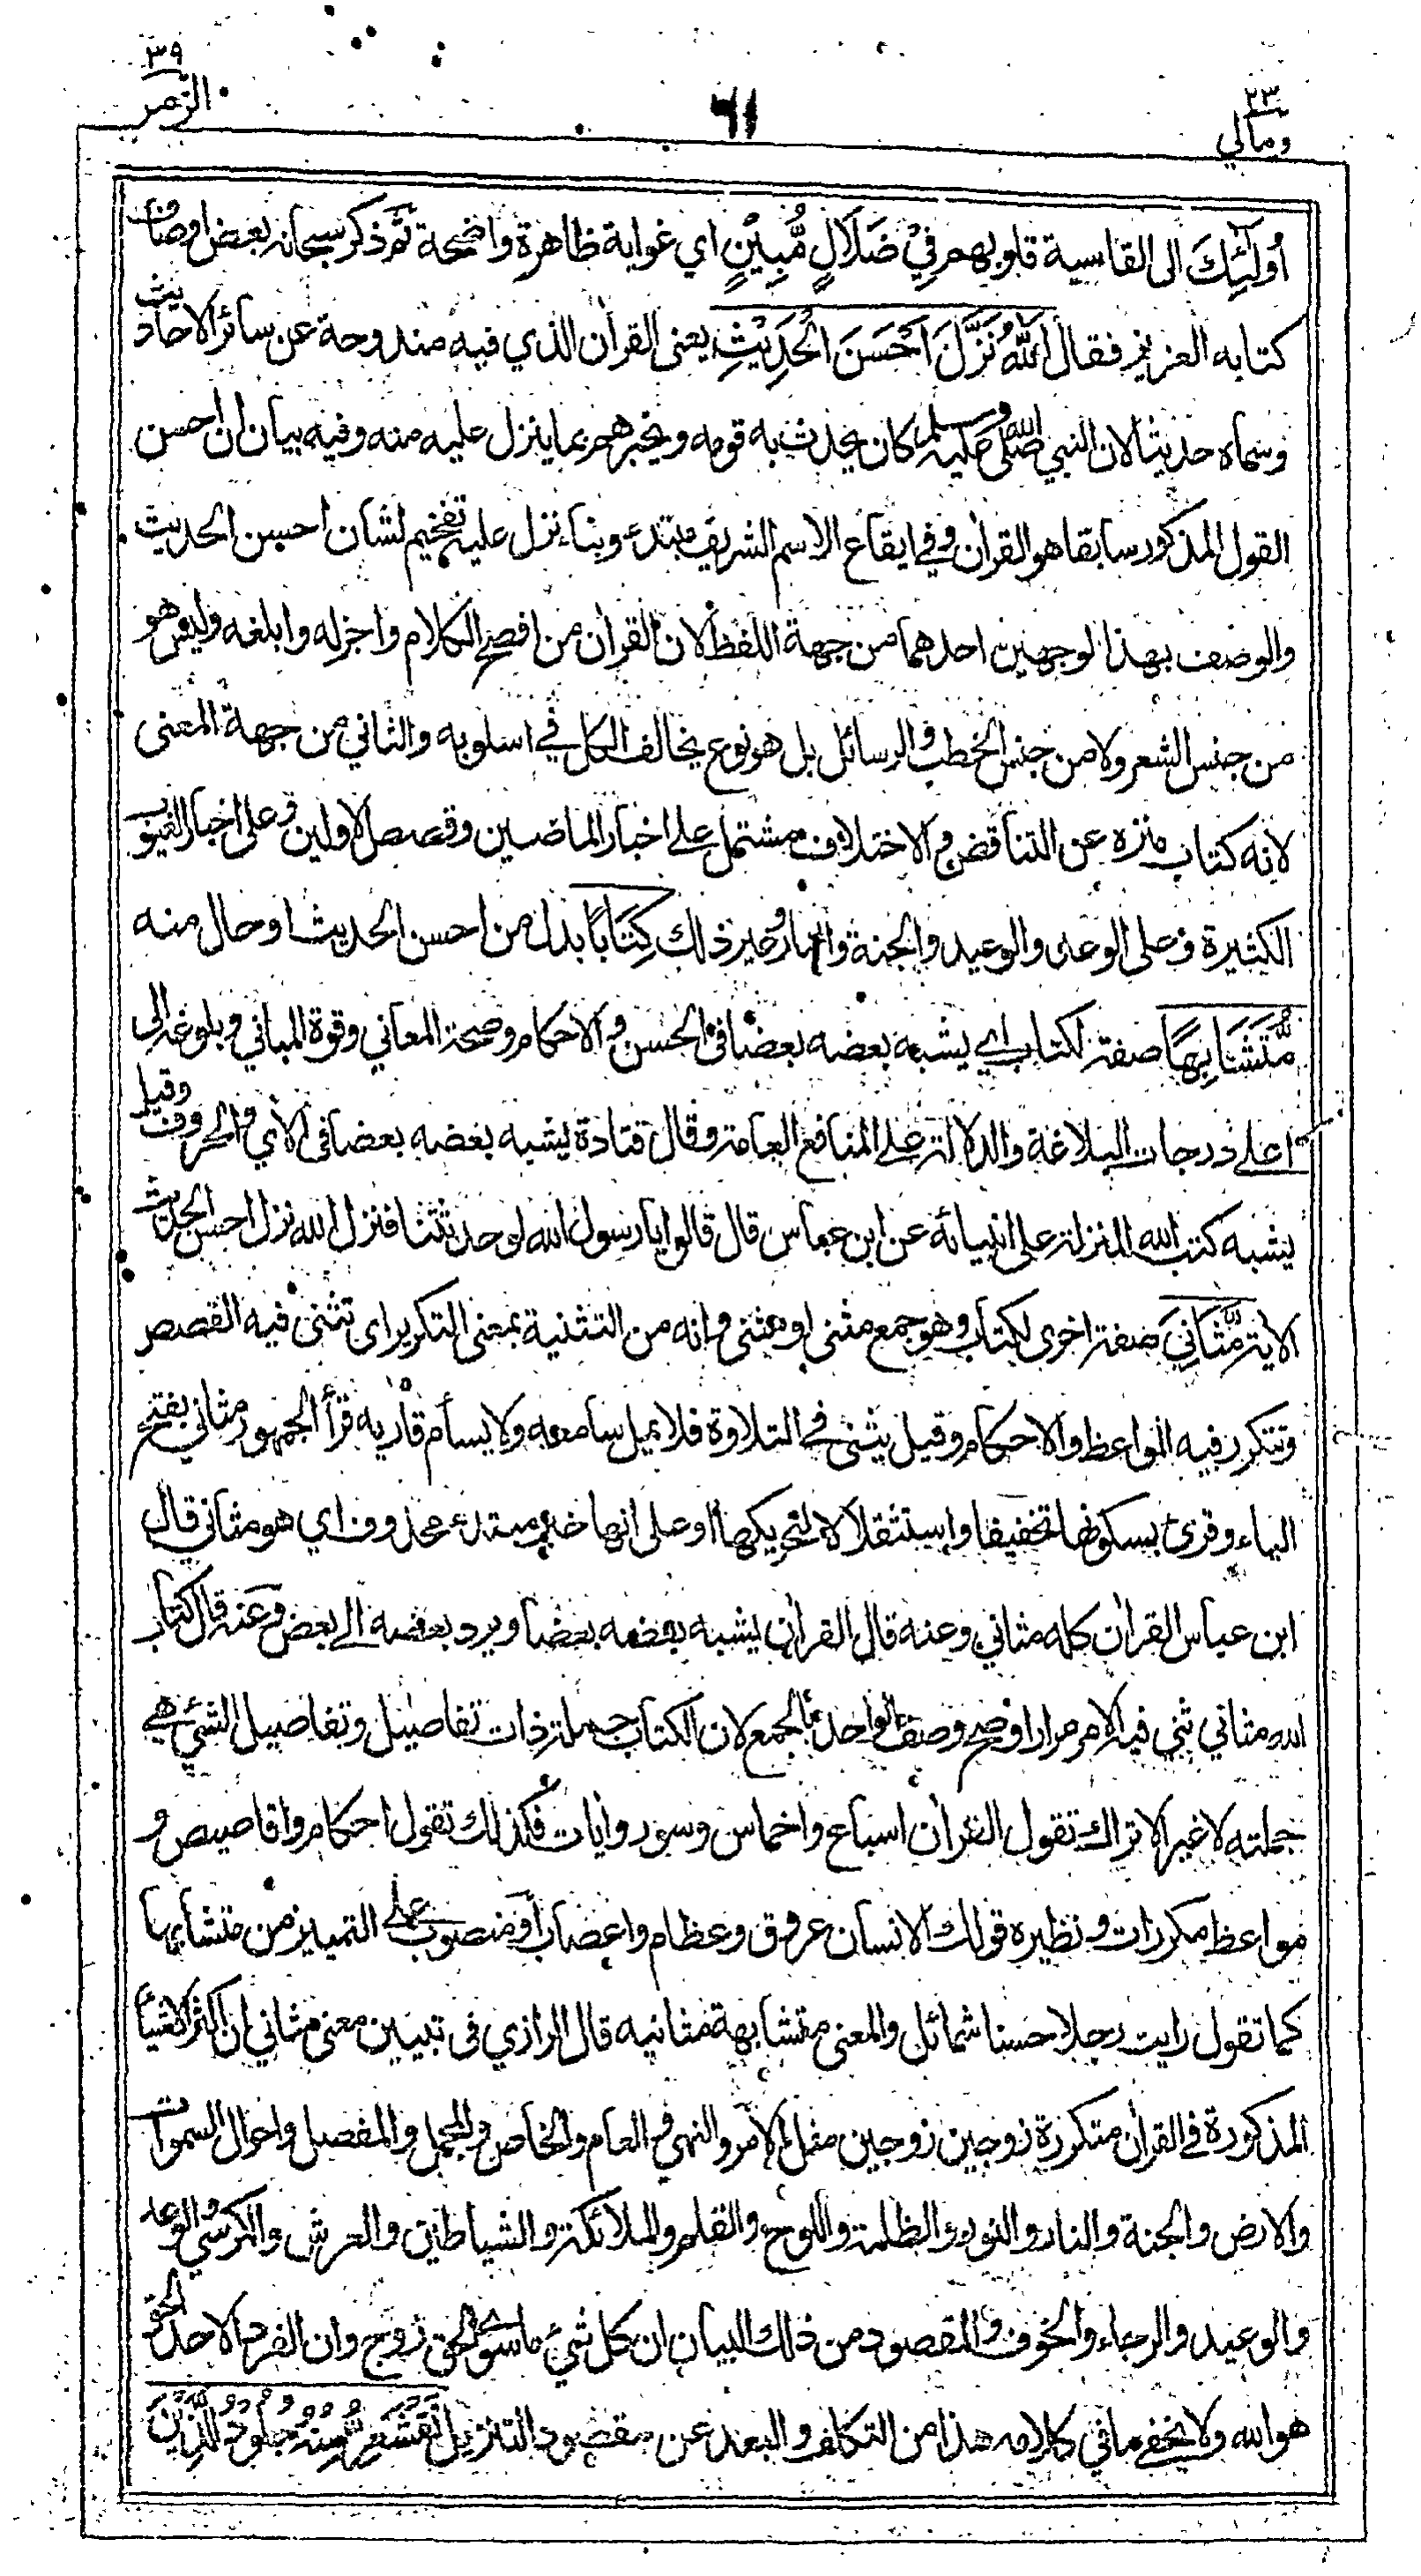 ٣٩
الزمر
٦١
٢٣
ومالي
أُولَٰئِكَ اى القاسية قلوبهم فِيْ ضَلَالٍ مُّبِيْنٍ اي غواية ظاهرة واضحة ثم ذكر سبحانه بعض اوصاف
كتابه العزيز فقال اَللّٰهُ نَزَّلَ اَحْسَنَ الْحَدِيْثِ يعنى القرآن الذي فيه مندوحة عن سائر الاحاديث
وسماه حديثا لان النبي صلى الله عليه وسلم كان يحدث به قومه ويخبرهم بما ينزل عليه منه وفيه بيان ان احسن
القول المذكور سابقا هو القرآن وفي ايقاع الاسم الشريف مبتدء وبناء نزل عليه تفخيم لشان احسن الحديث
والوصف بهذا لوجهين احدهما من جهة اللفظ لان القرآن من افصح الكلام واجزله وابلغه وليس هو
من جنس الشعر ولا من جنس الخطب والرسائل بل هو نوع يخالف الكل في اسلوبه والثاني من جهة المعنى
لانه كتاب منزه عن التناقض والاختلاف مشتمل على اخبار الماضين وقصص الاولين وعلى اخبار الغيوب
الكثيرة وعلى الوعد والوعيد والجنة والنار وغير ذلك كِتَابًا بدل من احسن الحديث او حال منه
مُّتَشَابِهًا صفة لكتاب اي يشبه بعضه بعضا فى الحسن والاحكام وصحة المعاني وقوة المباني وبلوغه الى
اعلى درجات البلاغة والدلالة على المنافع العامة وقال قتادة يشبه بعضه بعضا فى الآي والحروف وقيل
يشبه كتب الله المنزلة على انبيائه عن ابن عباس قال قالوا يا رسول الله لو حدثتنا فنزل الله نزل احسن الحديث
الاية مَّثَانِيَ صفة اخرى لكتاب وهو جمع مثنى او مثنى وانه من التثنية بمعنى التكرير اى تثنى فيه القصص
وتتكرر فيه المواعظ والاحكام وقيل يثنى في التلاوة فلا يمل سامعه ولا يسأم قاريه قرأ الجمهور مثاني بفتح
الياء وقرئ بسكونها تخفيفا واستثقلا لا لتحريكها او على انها خبر مبتدء محذوف اي هو مثاني قال
ابن عباس القرآن كله مثاني وعنه قال القرآن يشبه بعضه بعضا ويرد بعضه الى بعض وعنه قال كتاب
الله مثاني ثني فيه الامر مرارا وصح وصف الواحد بالجمع لان الكتاب جملة ذات تفاصيل وتفاصيل الشيئ هي
جملته لا غير الا تراك تقول القرآن اسباع واخماس وسور وآيات فكذلك تقول احكام واقاصيص و
مواعظ مكررات ونظيره قولك الانسان عروق وعظام واعصاب او منصوب على التمييز من متشابها
كما تقول رايت رجلا حسنا شمائل والمعنى متشابهة مثانيه قال الرازي فى تبيين معنى مثاني ان اكثر الاشياء
المذكورة في القرآن متكررة زوجين زوجين مثل الامر والنهي والعام والخاص والمجمل والمفصل واحوال السموات
والارض والجنة والنار والنور والظلمة واللوح والقلم والملائكة والشياطين والعرش والكرسي والوعد
والوعيد والرجاء والخوف والمقصود من ذلك البيان ان كل شيئ ما سوى الحق زوج وان الفرد الاحد الحق
هو الله ولا يخفى ما في كلامه هذا من التكلف والبعد عن مقصود التنزيل تَقْشَعِرُّ مِنْهُ جُلُودُ الَّذِيْنَ